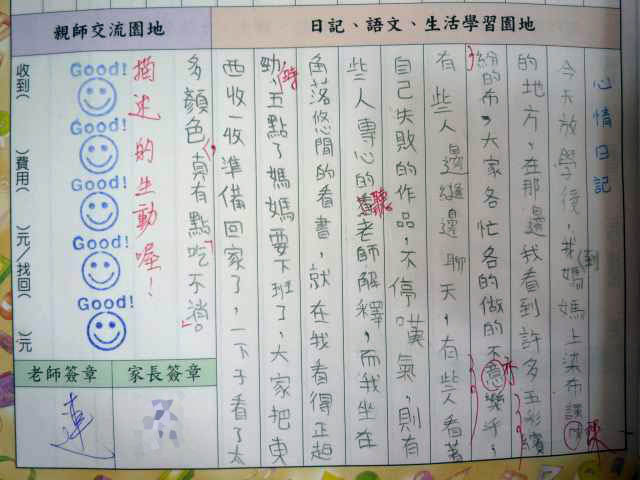 日記、語文、生活學習園地
親師交流園地
心情日記
今天放學後,我到媽媽上染布課
的地方,在那邊我看到許多五彩繽
紛的布,大家各忙各的做的不亦樂乎,
有些人邊縫邊聊天,有些人看著
自己失敗的作品,不停嘆氣,則有
些人專心的聽老師解釋,而我坐在
角落悠閒的看書,就在我看得正起
勁時,五點了媽媽要下班了,大家把東
西收一收準備回家了,一下子看了太
多顏色,真有點吃不消。
描述的生動喔!
Good!
Good!
Good!
Good!
Good!
收到( )費用( )元/找回( )元
老師簽章
家長簽章
連